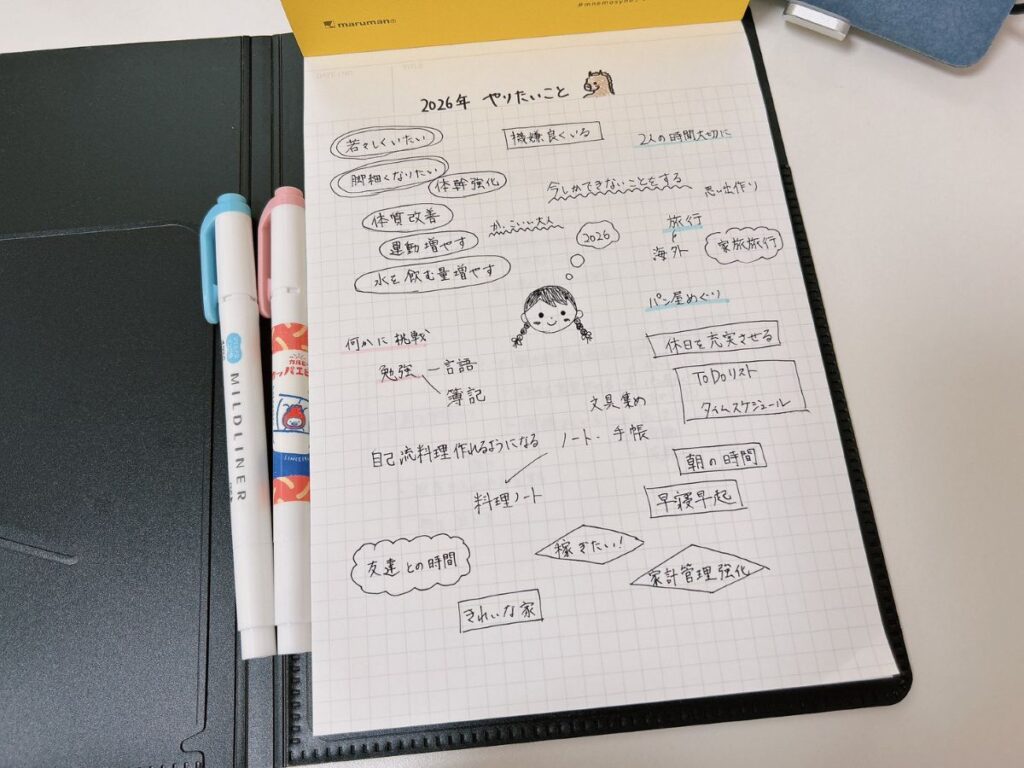 maruman
#mnemosyne
DATE / NO.
TITLE
2026年 やりたいこと
若々しくいたい
機嫌良くいる
2人の時間大切に
脚細くなりたい
体幹強化
今しかできないことをする
思い出作り
体質改善
かっこいい大人
2026
旅行
海外
家族旅行
運動増やす
水を飲む量増やす
パン屋めぐり
何かに挑戦
休日を充実させる
勉強 言語
簿記
ToDoリスト
タイムスケジュール
文具集め
ノート・手帳
自己流料理作れるようになる
料理ノート
朝の時間
早寝早起
友達との時間
稼ぎたい!
家計管理強化
きれいな家
MILDLINER